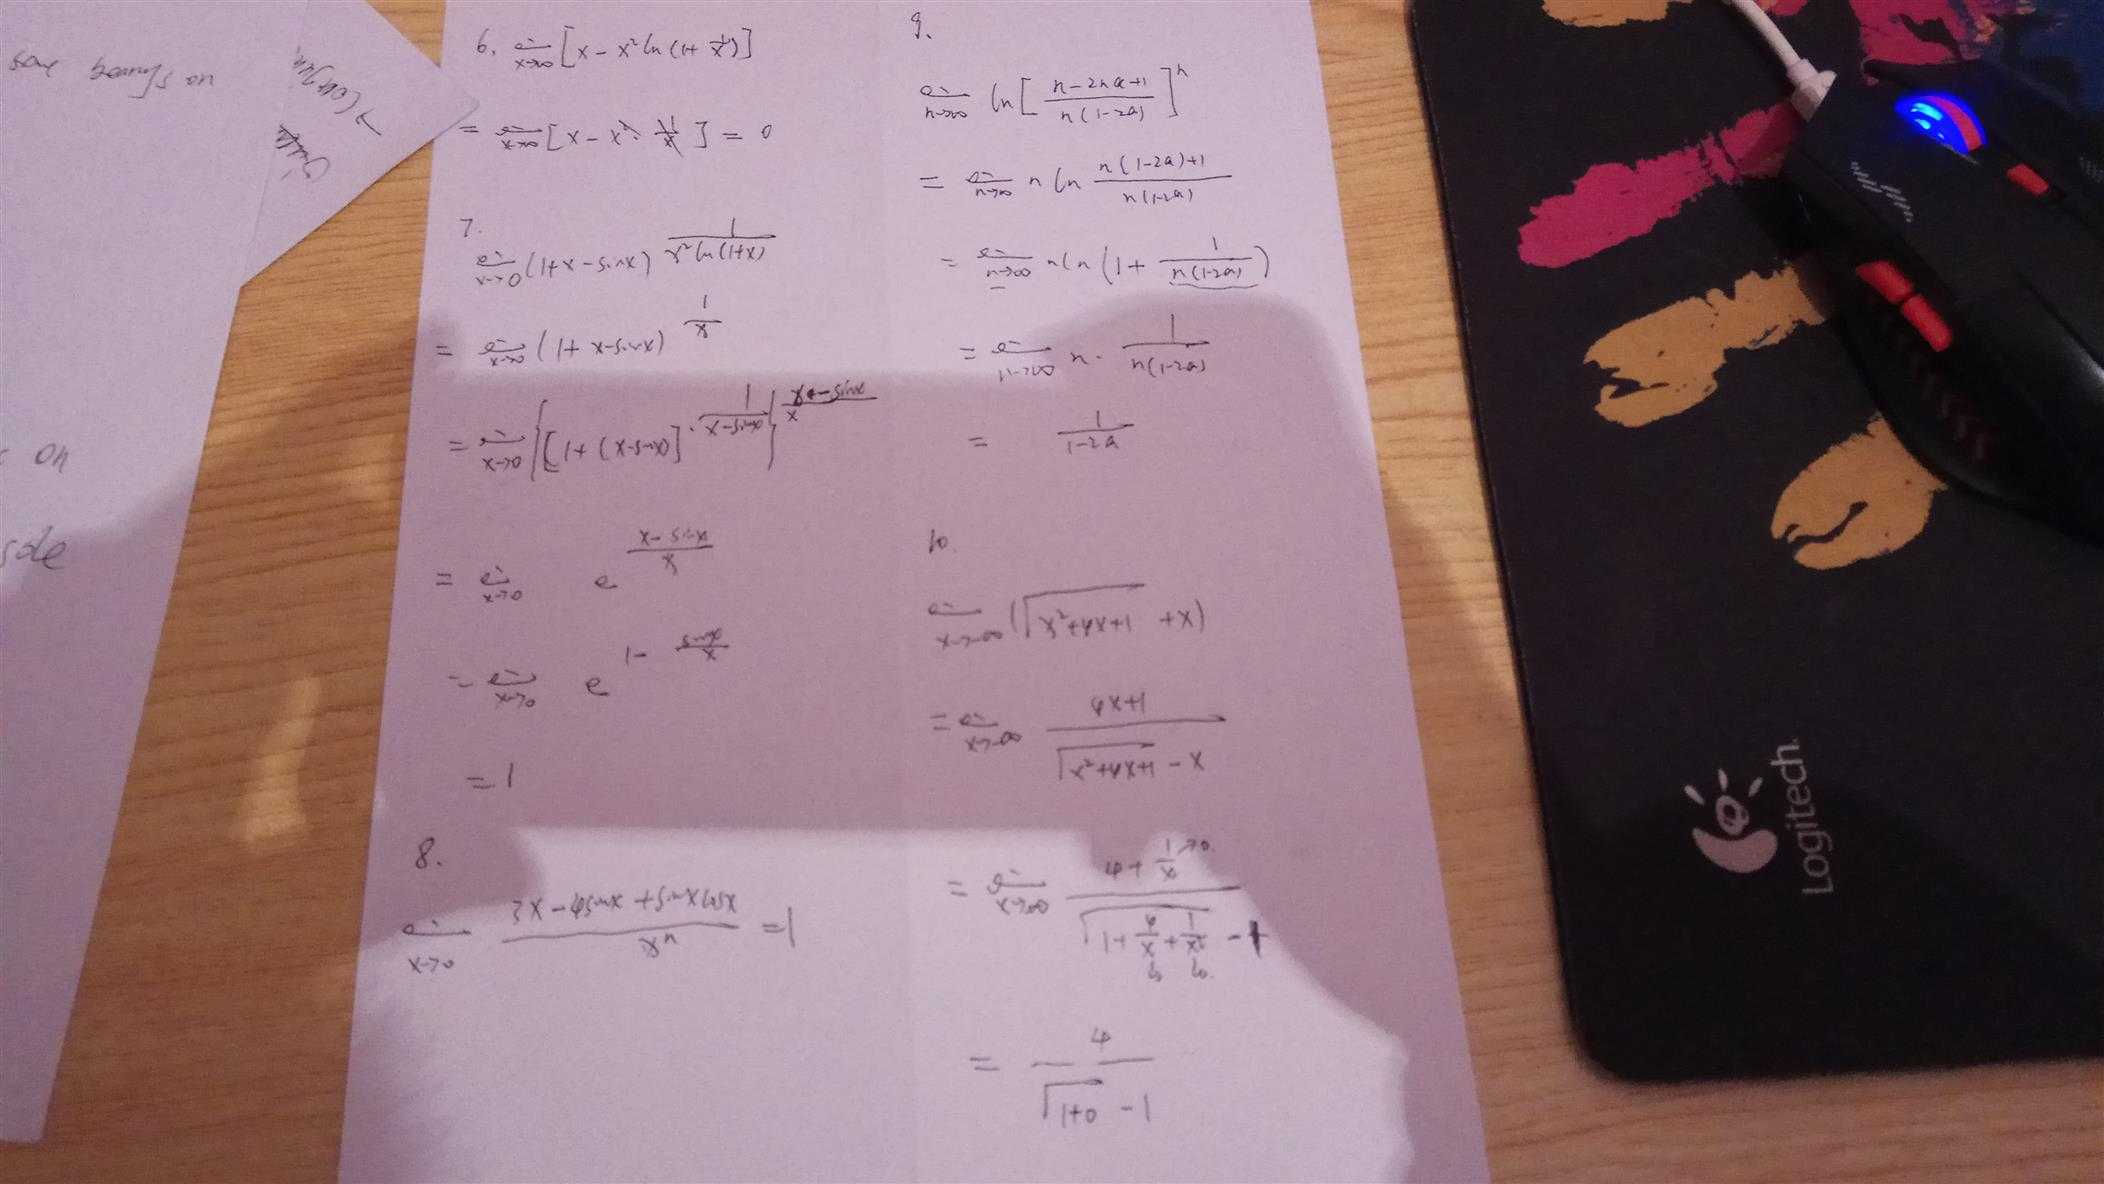 6. lim x→∞ [x − x² ln(1 + 1/x)]
= lim x→∞ [x − x² · 1/x] = 0
7.
lim x→0 (1+x−sinx)^(1/(x² ln(1+x)))
= lim x→0 (1+x−sinx)^(1/x)
= lim x→0 {[1+(x−sinx)]^(1/(x−sinx))}^((x−sinx)/x)
= lim x→0 e^((x−sinx)/x)
= lim x→0 e^(1 − sinx/x)
= 1
8.
lim x→0 (3x−4sinx+sinxcosx)/x^n = 1
9.
lim n→∞ ln[(n−2na+1)/(n(1−2a))]^n
= lim n→∞ n ln (n(1−2a)+1)/(n(1−2a))
= lim n→∞ n ln(1 + 1/(n(1−2a)))
= lim n→∞ n · 1/(n(1−2a))
= 1/(1−2a)
10.
lim x→−∞ (√(x²+4x+1) + x)
= lim x→−∞ (4x+1)/(√(x²+4x+1) − x)
= lim x→∞ (4 + 1/x →0)/(√(1 + 4/x + 1/x²) − 1)
= 4/(√(1+0) − 1)
on
sole
Logitech